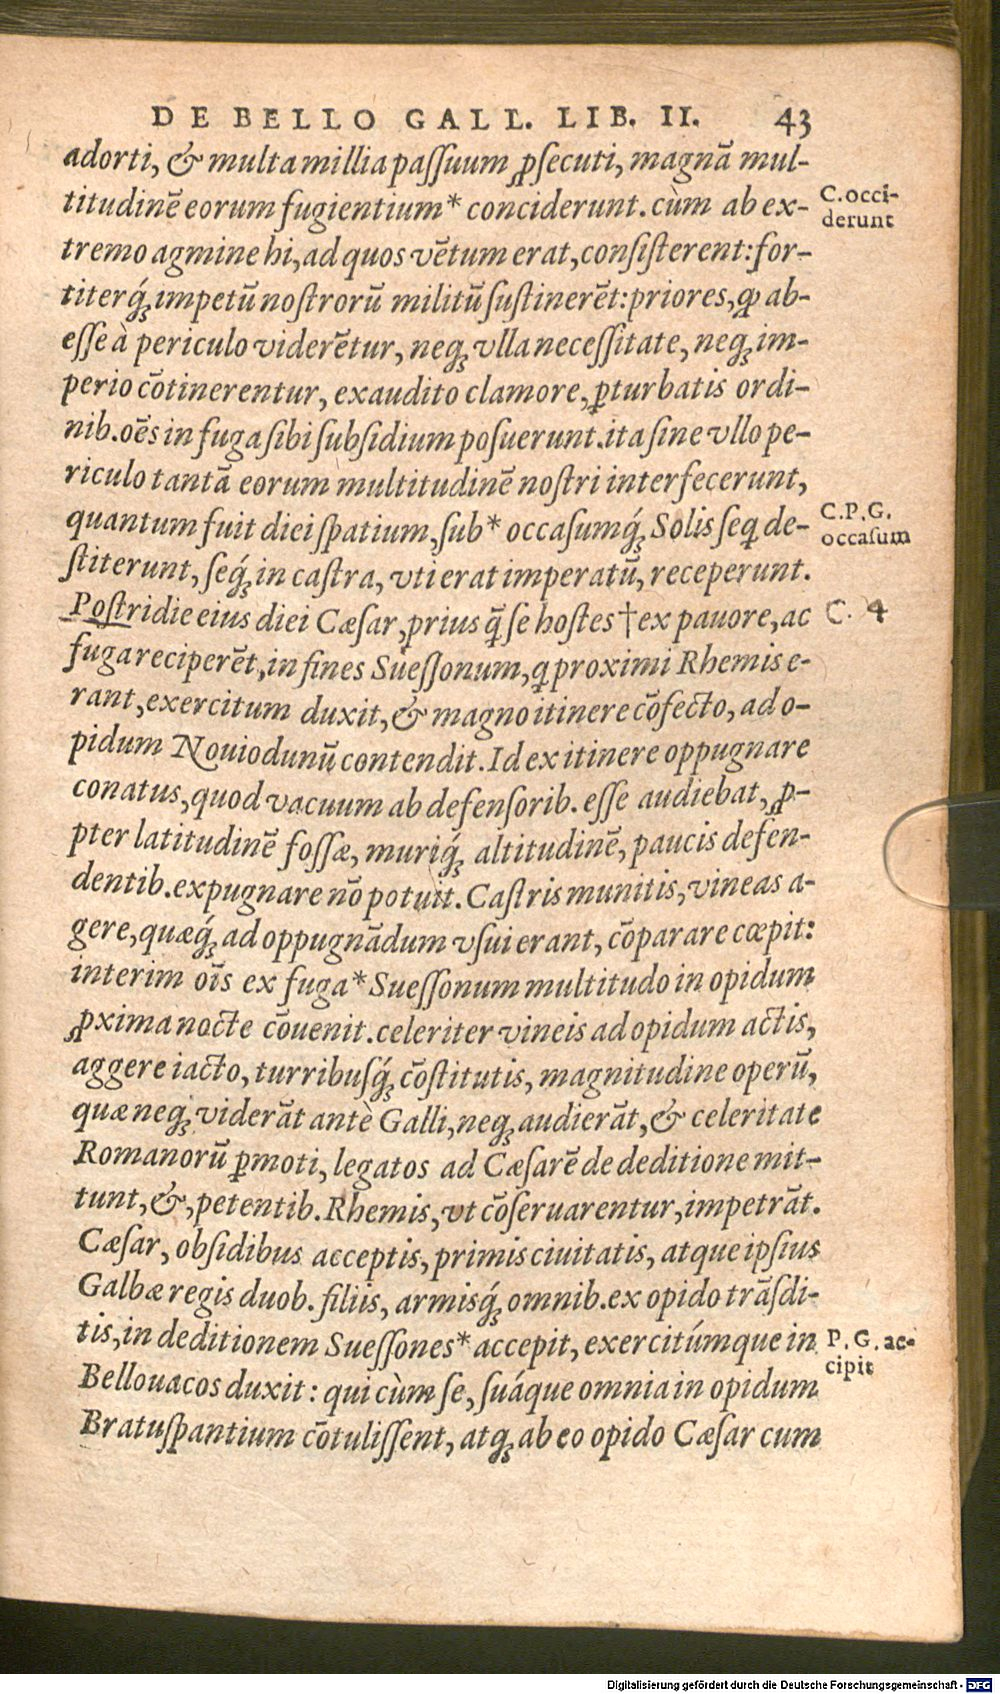 DE BELLO GALL. LIB. II. 43
adorti, & multa millia paſſuum ꝓſecuti, magnā mul-
titudinē eorum fugientium* conciderunt. cùm ab ex-
C. occi-
derunt
tremo agmine hi, ad quos vētum erat, conſiſterent: for-
titerq́; impetū noſtrorū militū ſuſtinerēt: priores, ꝙ ab-
eſſe à periculo viderētur, neq; vlla neceſſitate, neq; im-
perio cōtinerentur, exaudito clamore, ꝑturbatis ordi-
nib. oēs in fuga ſibi ſubſidium poſuerunt. ita ſine vllo pe-
riculo tantā eorum multitudinē noſtri interfecerunt,
quantum fuit diei ſpatium, ſub* occaſumq́; Solis ſeq̨ de-
C. P. G.
occaſum
ſtiterunt, ſeq́; in caſtra, vti erat imperatū, receperunt.
Poſtridie eius diei Cæſar, prius q̄ ſe hoſtes † ex pauore, ac
C. 4
fuga reciperēt, in fines Sueſſonum, q̨ proximi Rhemis e-
rant, exercitum duxit, & magno itinere cōfecto, ad o-
pidum Nouiodunū contendit. Id ex itinere oppugnare
conatus, quod vacuum ab defenſorib. eſſe audiebat, ꝓ-
pter latitudinē foſſæ, muriq́; altitudinē, paucis defen-
dentib. expugnare nō potuit. Caſtris munitis, vineas a-
gere, quæq́; ad oppugnādum vſui erant, cōparare cœpit:
interim oīs ex fuga* Sueſſonum multitudo in opidum
ꝓxima nocte cōuenit. celeriter vineis ad opidum actis,
aggere iacto, turribuſq́; cōſtitutis, magnitudine operū,
quæ neq; viderāt antè Galli, neq; audierāt, & celeritate
Romanorū ꝑmoti, legatos ad Cæſarē de deditione mit-
tunt, &, petentib. Rhemis, vt cōſeruarentur, impetrāt.
Cæſar, obſidibus acceptis, primis ciuitatis, atque ipſius
Galbæ regis duob. filiis, armisq́; omnib. ex opido trāſdi-
tis, in deditionem Sueſſones* accepit, exercitúmque in
P. G. ac-
cipit
Bellouacos duxit: qui cùm ſe, ſuáque omnia in opidum
Bratuſpantium cōtuliſſent, atq; ab eo opido Cæſar cum
Digitalisierung gefördert durch die Deutsche Forschungsgemeinschaft - DFG